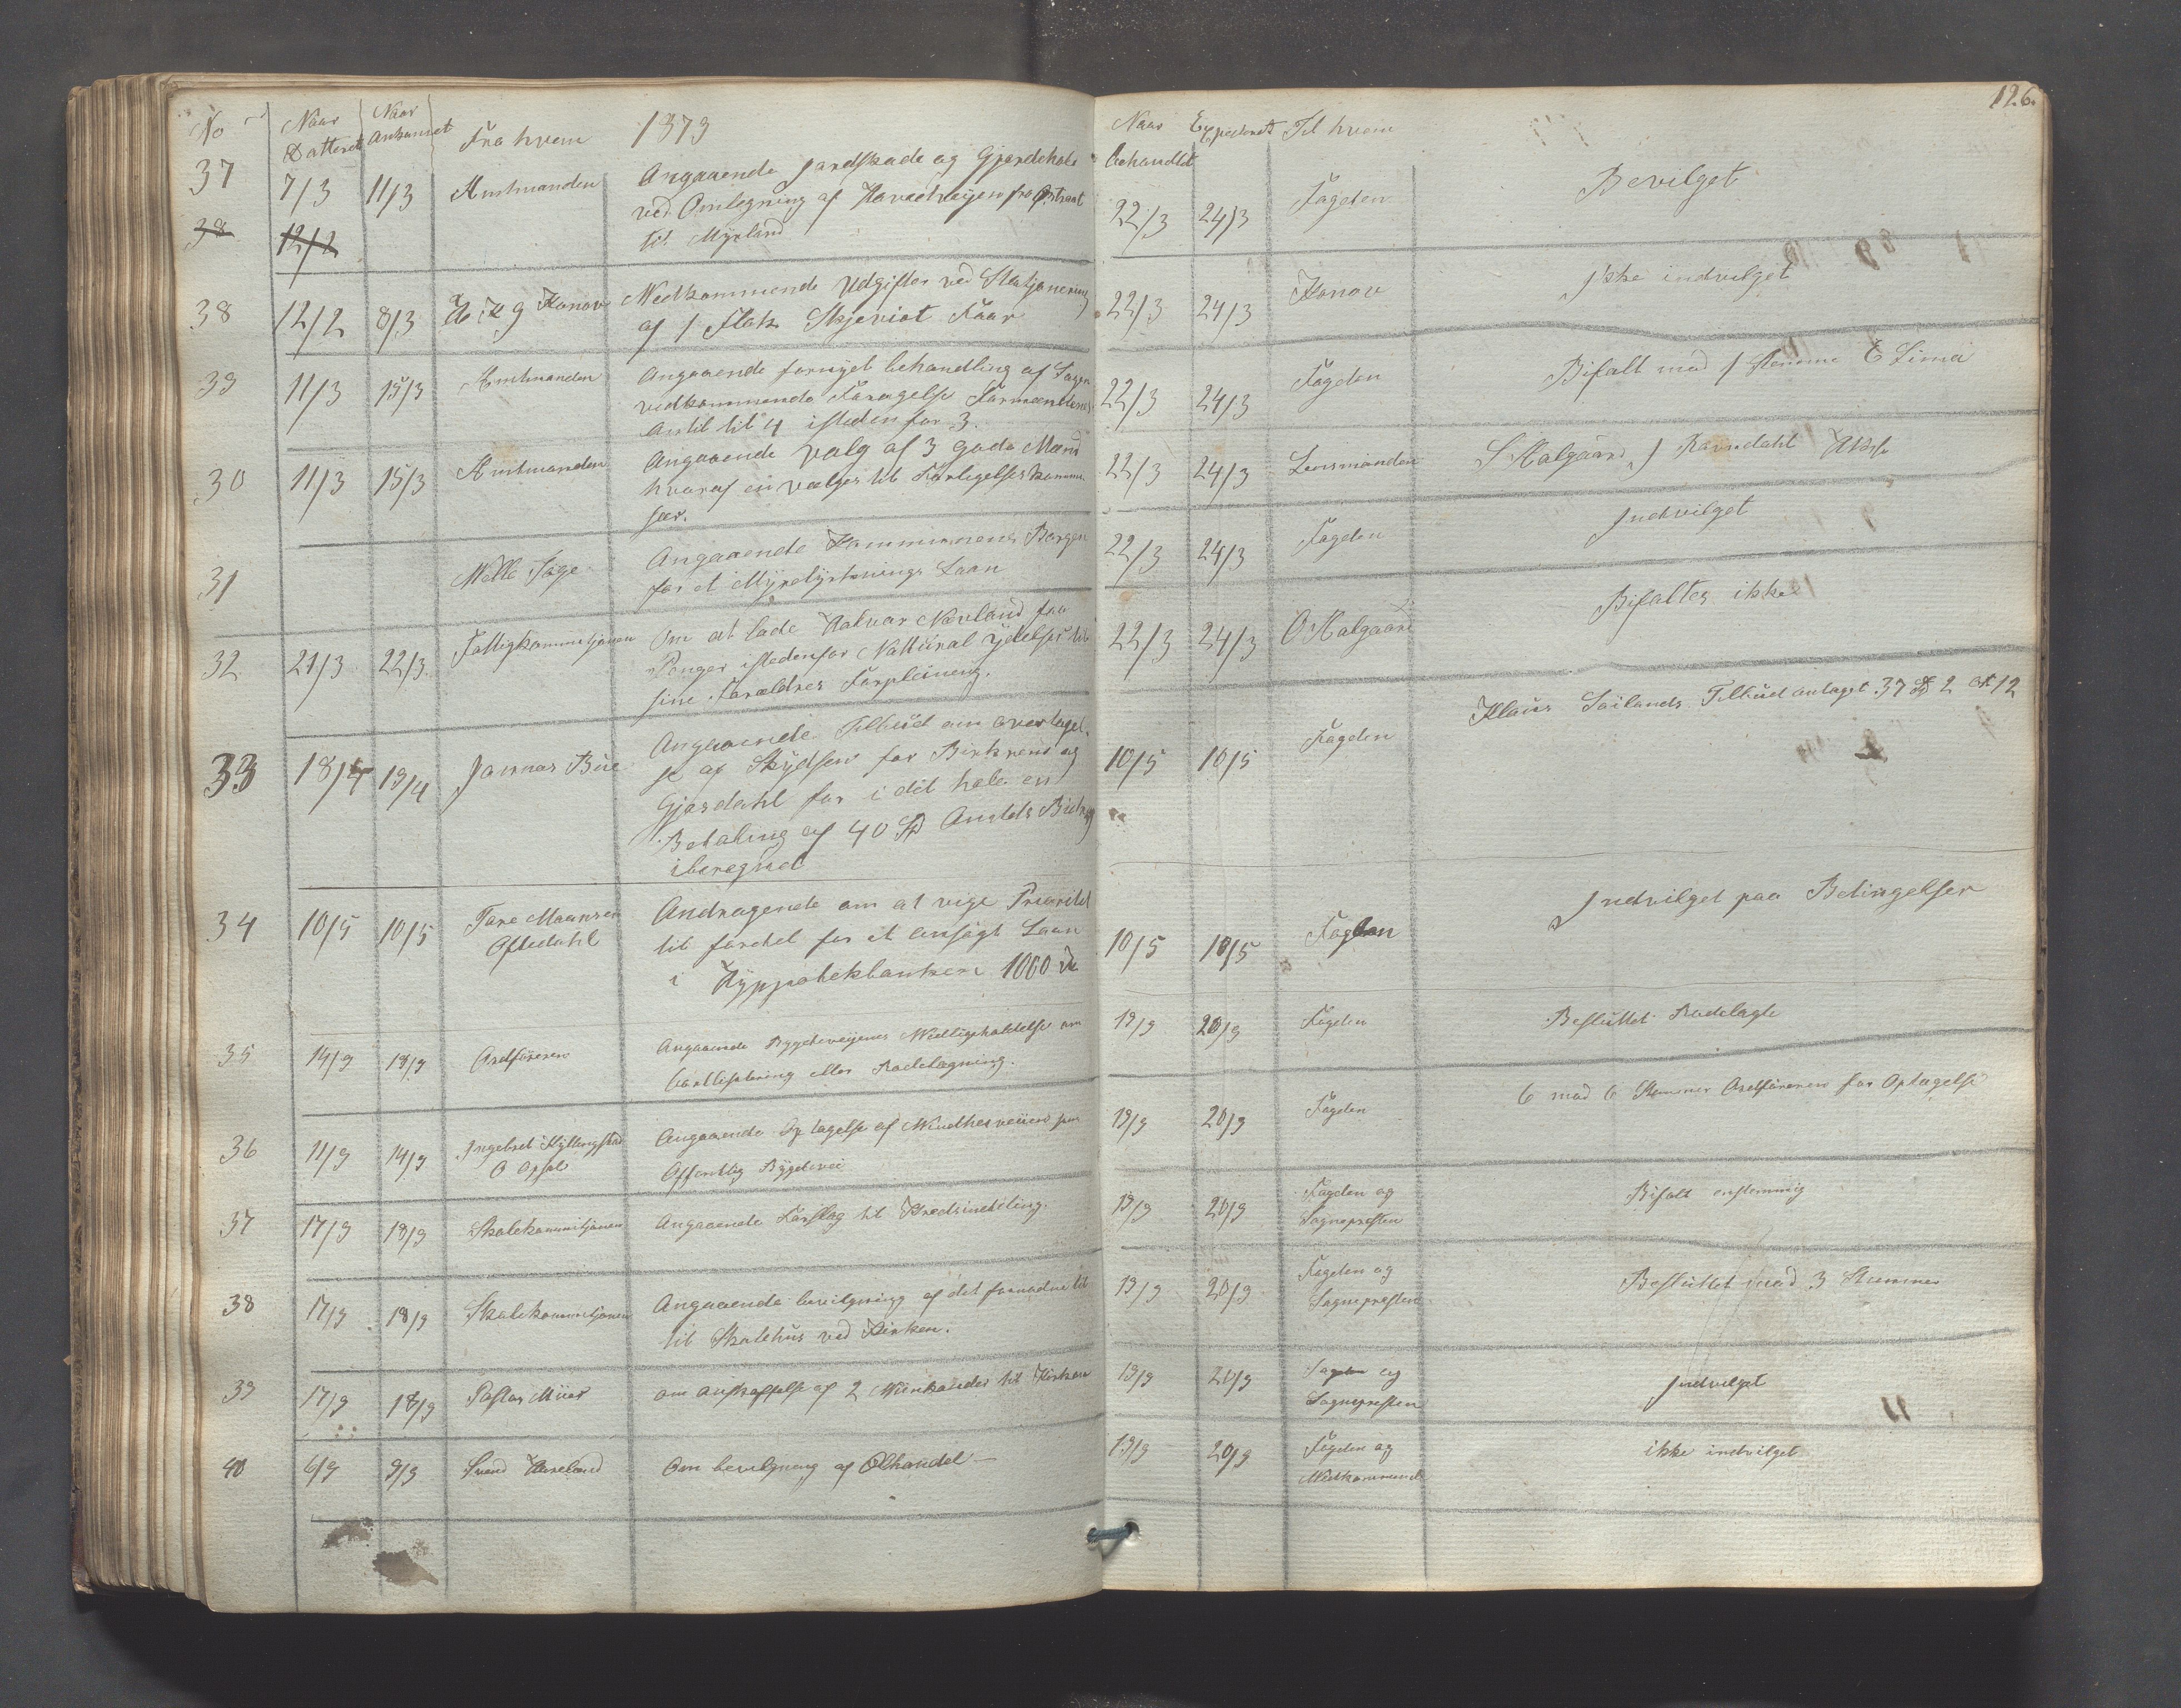 No Naar Datteret Naar Ankommet Fra hvem 1873
37 7/3 11/3 Amtmanden Angaaende Jordskade og Gjerdehold
ved Omlegning af Hovedveijen fra
til Myrland
38 12/2
38 12/2 8/3 Konow Vedkommende Udgifter ved Stasjonering
af 1 Flok Skjeviot Faar
39 11/3 15/3 Amtmanden Angaaende fornyet behandling af Sagen
vedkommende Forøgelse Formændenes
Antil til 4 istedenfor 3.
30 11/3 15/3 Amtmanden Angaaende Valg af 3 gode Mænd
hvoraf en vælges til Forligelseskommi-
sær.
31 Angaaende Kommunens Borgen
for et Myrdyrknings Laan
32 21/3 22/3 Fattigkommisjonen Om at lade Halvor Nævland faa
Penger istedenfor Natural Ydelser til
sine Forældres Forpleining.
33 18/4 19/4 Jonnas Bue Angaaende Tilbud om overtagel-
se af Skydsen for Birkrem og
Gjæsdahl for i det hele en
Betaling af 40 Spd Amtets Bidrag
iberegnet
34 10/5 10/5 Tore Maansen
Oftedahl
Andragende om at vige Prioritet
til fordel for et ansøgt Laan
i Hyppotekbanken 1000 Spd
35 14/9 18/9 Ordføreren Angaaende Bygdeveijenes Vedligeholdelse om
bortlisitering eller Rodelægning.
36 11/9 14/9 Ingebret Kyllingstad
O Opsal
Angaaende Optagelse af som
Offentlig Bygdevei
37 17/9 18/9 Skolekommisjonen Angaaende Forslag til Kredsinddeling.
38 17/9 18/9 Skolekommisjonen Angaaende bevilgning af det fornødne til
til Skolehus ved Kirken.
39 17/9 18/9 Pastor om anskaffelse af 2 til Kirken
40 6/9 9/9 Svend Haveland Om bevilgning af Ølhandel —
126.
Naar behandlet Expederet Til hvem
22/3 24/3 Fogden Bevilget
22/3 24/3 Konow Ikke indvilget
22/3 24/3 Fogden Bifalt mod 1 Stemme E Lima
22/3 24/3 Lensmanden S Kalgaard, J Ravndahl
22/3 24/3 Fogden Indvilget
22/3 24/3 O Kalgaard Bifaltes ikke
10/5 10/5 Fogden Klaus Soilands Tilbud antaget 37 Spd 2 ort 12
10/5 10/5 Fogden Indvilget paa Betingelser
19/9 20/9 Fogden Besluttet Rodelagte
19/9 20/9 Fogden 6 mod 6 Stemmer Ordføreren for Optagelse
19/9 20/9 Fogden og
Sognepresten
Bifalt enstemmig
19/9 20/9 Fogden og
Sognepresten
Besluttet mod 3 Stemmer
19/9 20/9 Fogden og
Sognepresten
Indvilget
19/9 20/9 Fogden og
Vedkommende
ikke indvilget